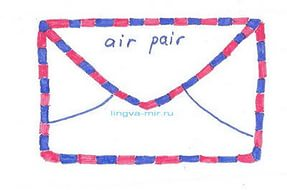 air pair
lingva-mir.ru